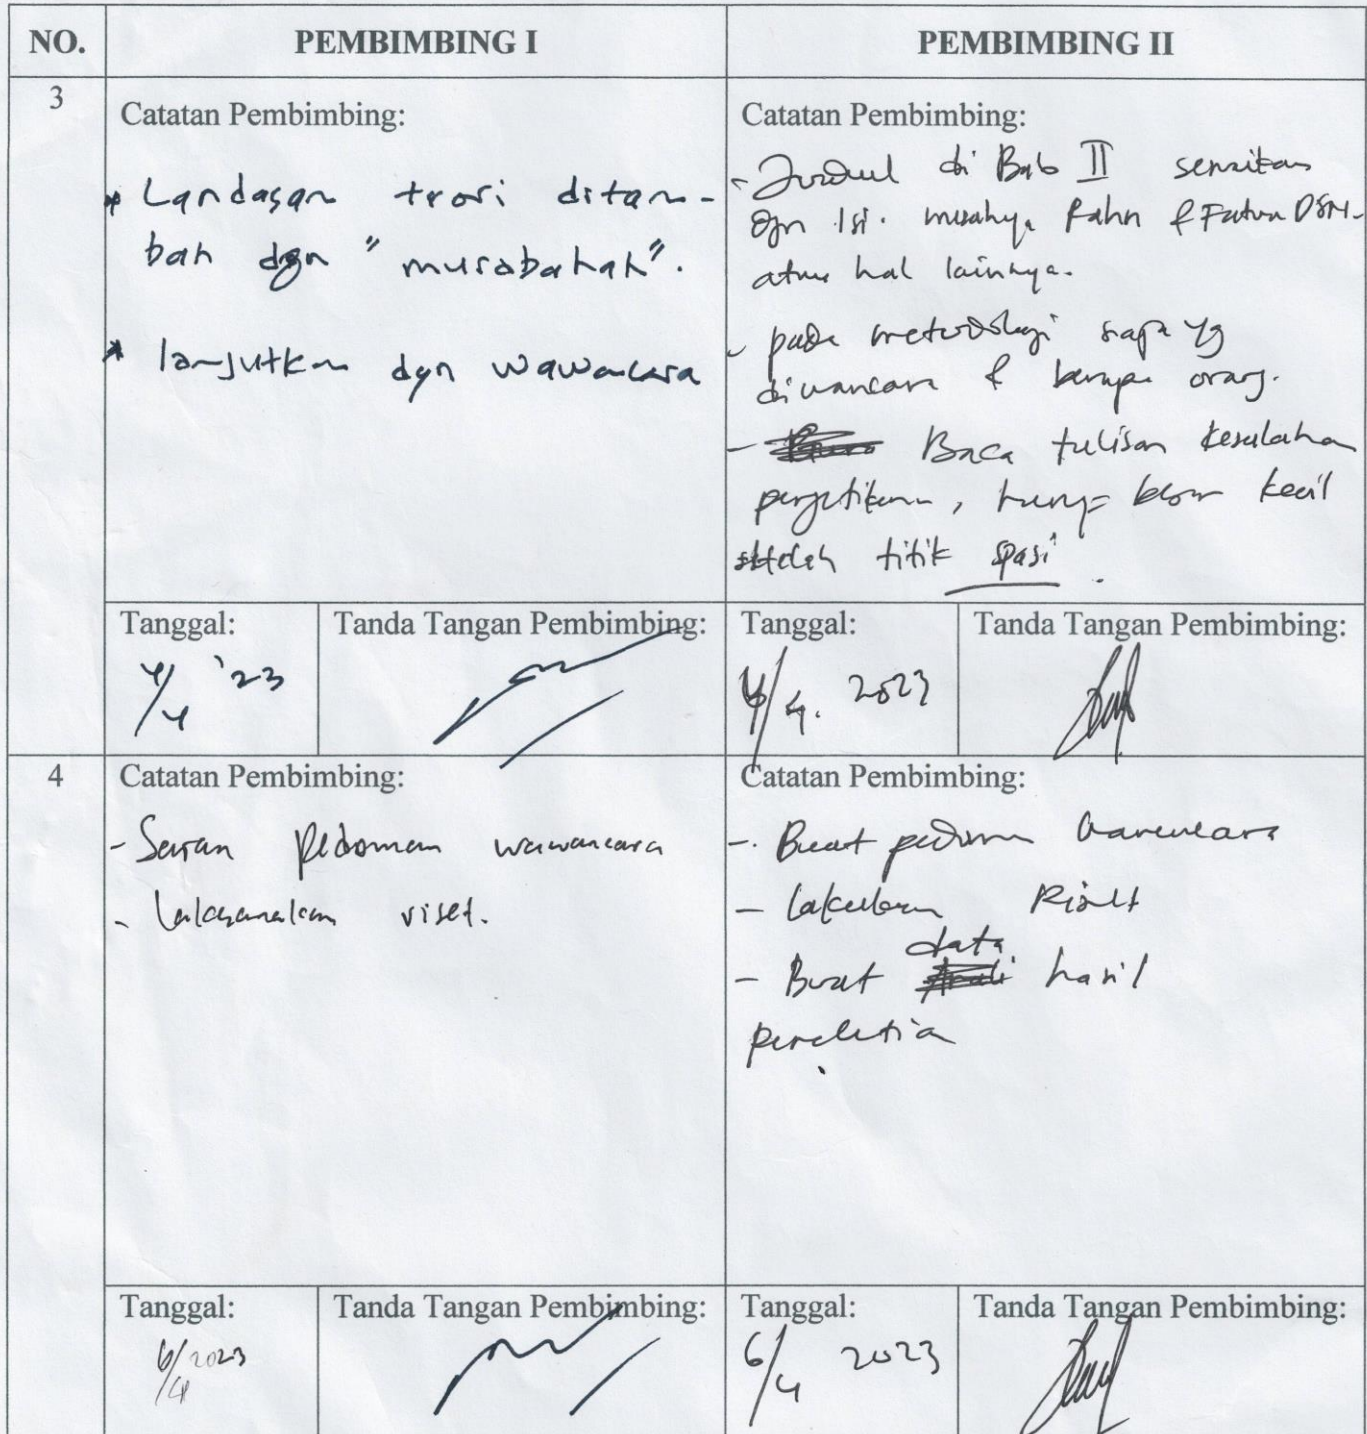 NO.
PEMBIMBING I
PEMBIMBING II
3
Catatan Pembimbing:
* Landasan teori ditam-
bah dgn "murabahah".
* lanjutkan dgn wawancara
Catatan Pembimbing:
- Judul di Bab II sesuaikan
dgn isi. misalnya Rahn & Fatwa DSN-
atau hal lainnya.
- pada metodologi siapa yg
diwawancara & berapa orang.
- Baca tulisan kesalahan
pengetikan, huruf besar kecil
setelah titik spasi.
Tanggal:
4/4 '23
Tanda Tangan Pembimbing:
Tanggal:
/4. 2023
Tanda Tangan Pembimbing:
4
Catatan Pembimbing:
- pedoman wawancara
- laksanakan riset.
Catatan Pembimbing:
- Buat pedoman wawancara
- lakukan Riset
- Buat data hasil
penelitian
Tanggal:
6/4 2023
Tanda Tangan Pembimbing:
Tanggal:
6/4 2023
Tanda Tangan Pembimbing: